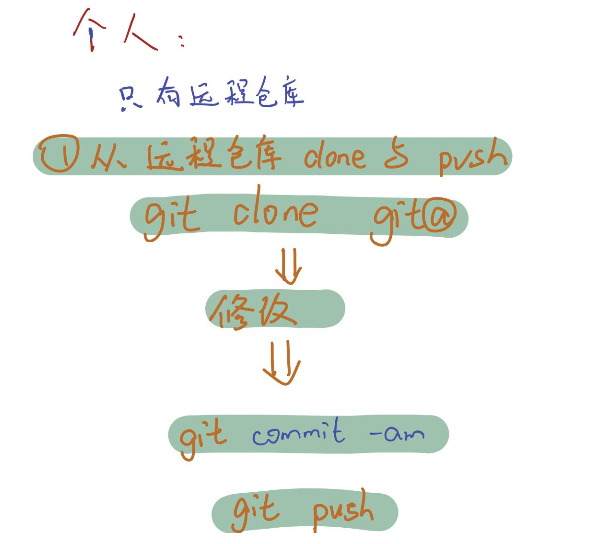 个人：
只有远程仓库
①从远程仓库 clone 与 push
git clone git@
修改
git commit -am
git push